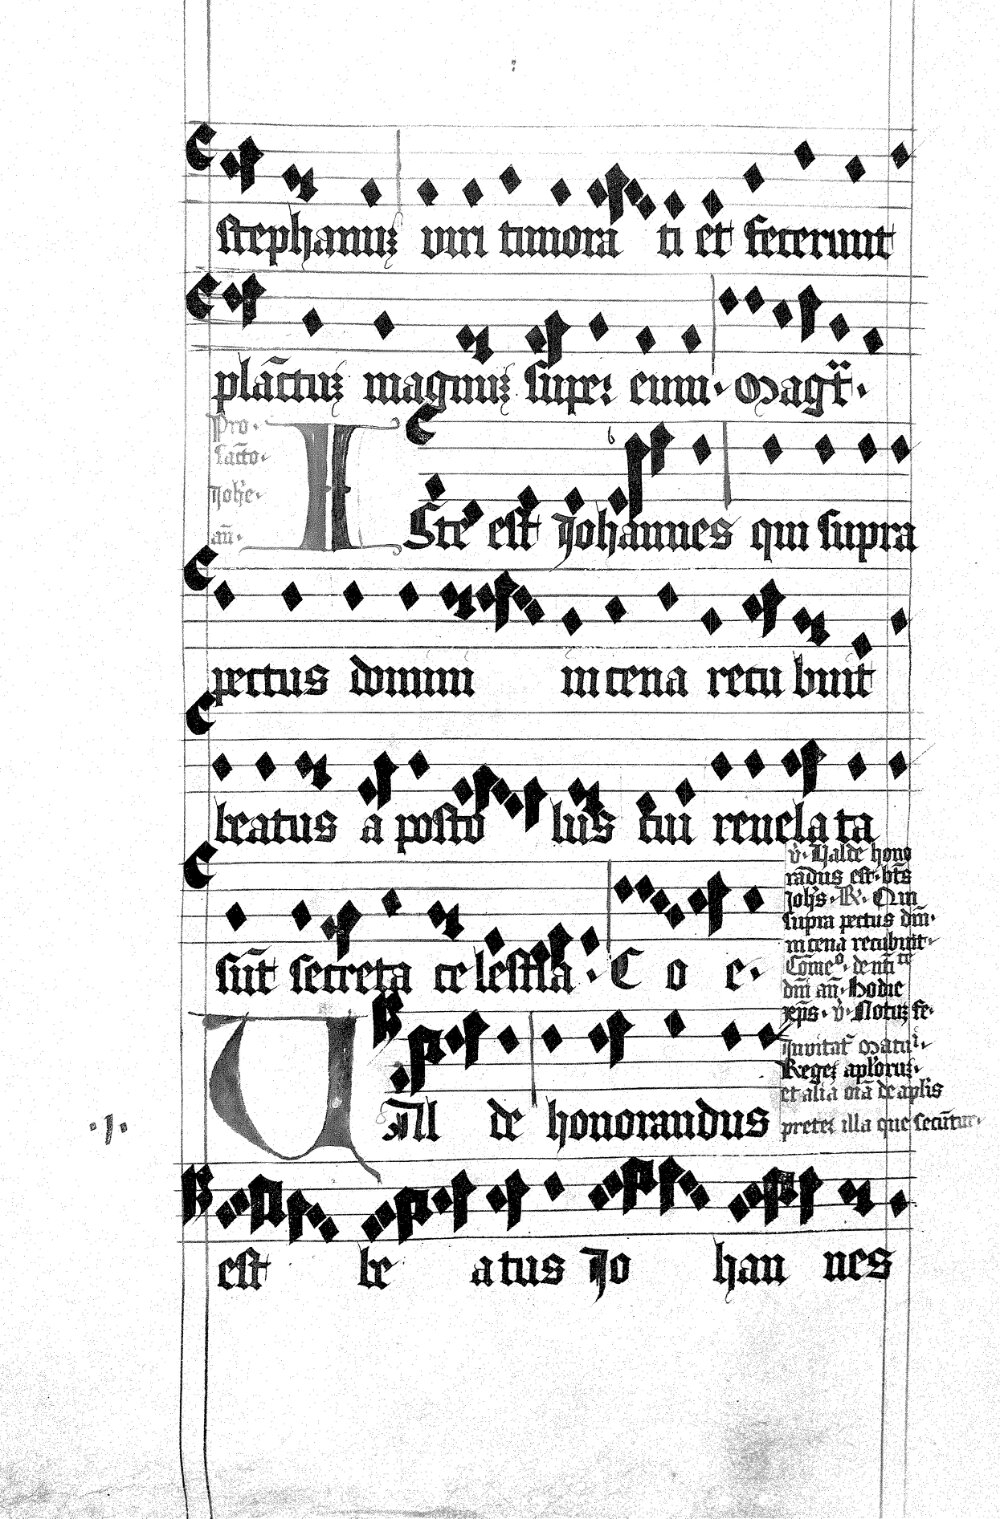 stephanuꝫ viri timora ti et fecerunt
plãctuꝫ magnuꝫ super eum · Magt̃ ·
Pro ·
sãcto ·
Joh̃e ·
añ ·
ISte est Johannes qui supra
pectus domini in cena recu buit
beatus a posto lus cui reuela ta
sũt secreta ce lestia · E o e ·
v̾ · Ualde hono
rãdus est · bt̃s
Joh̃s · R̸ · Qui
supra pectus dñi ·
in cena recubuit ·
dñi añ · Hodie
Inuitat̃ Matui ·
Regeꝫ aplõruꝫ ·
et alia oĩa de aplĩs
preter illa que secũtur
UAll de honorandus
· j ·
est be atus Jo han nes